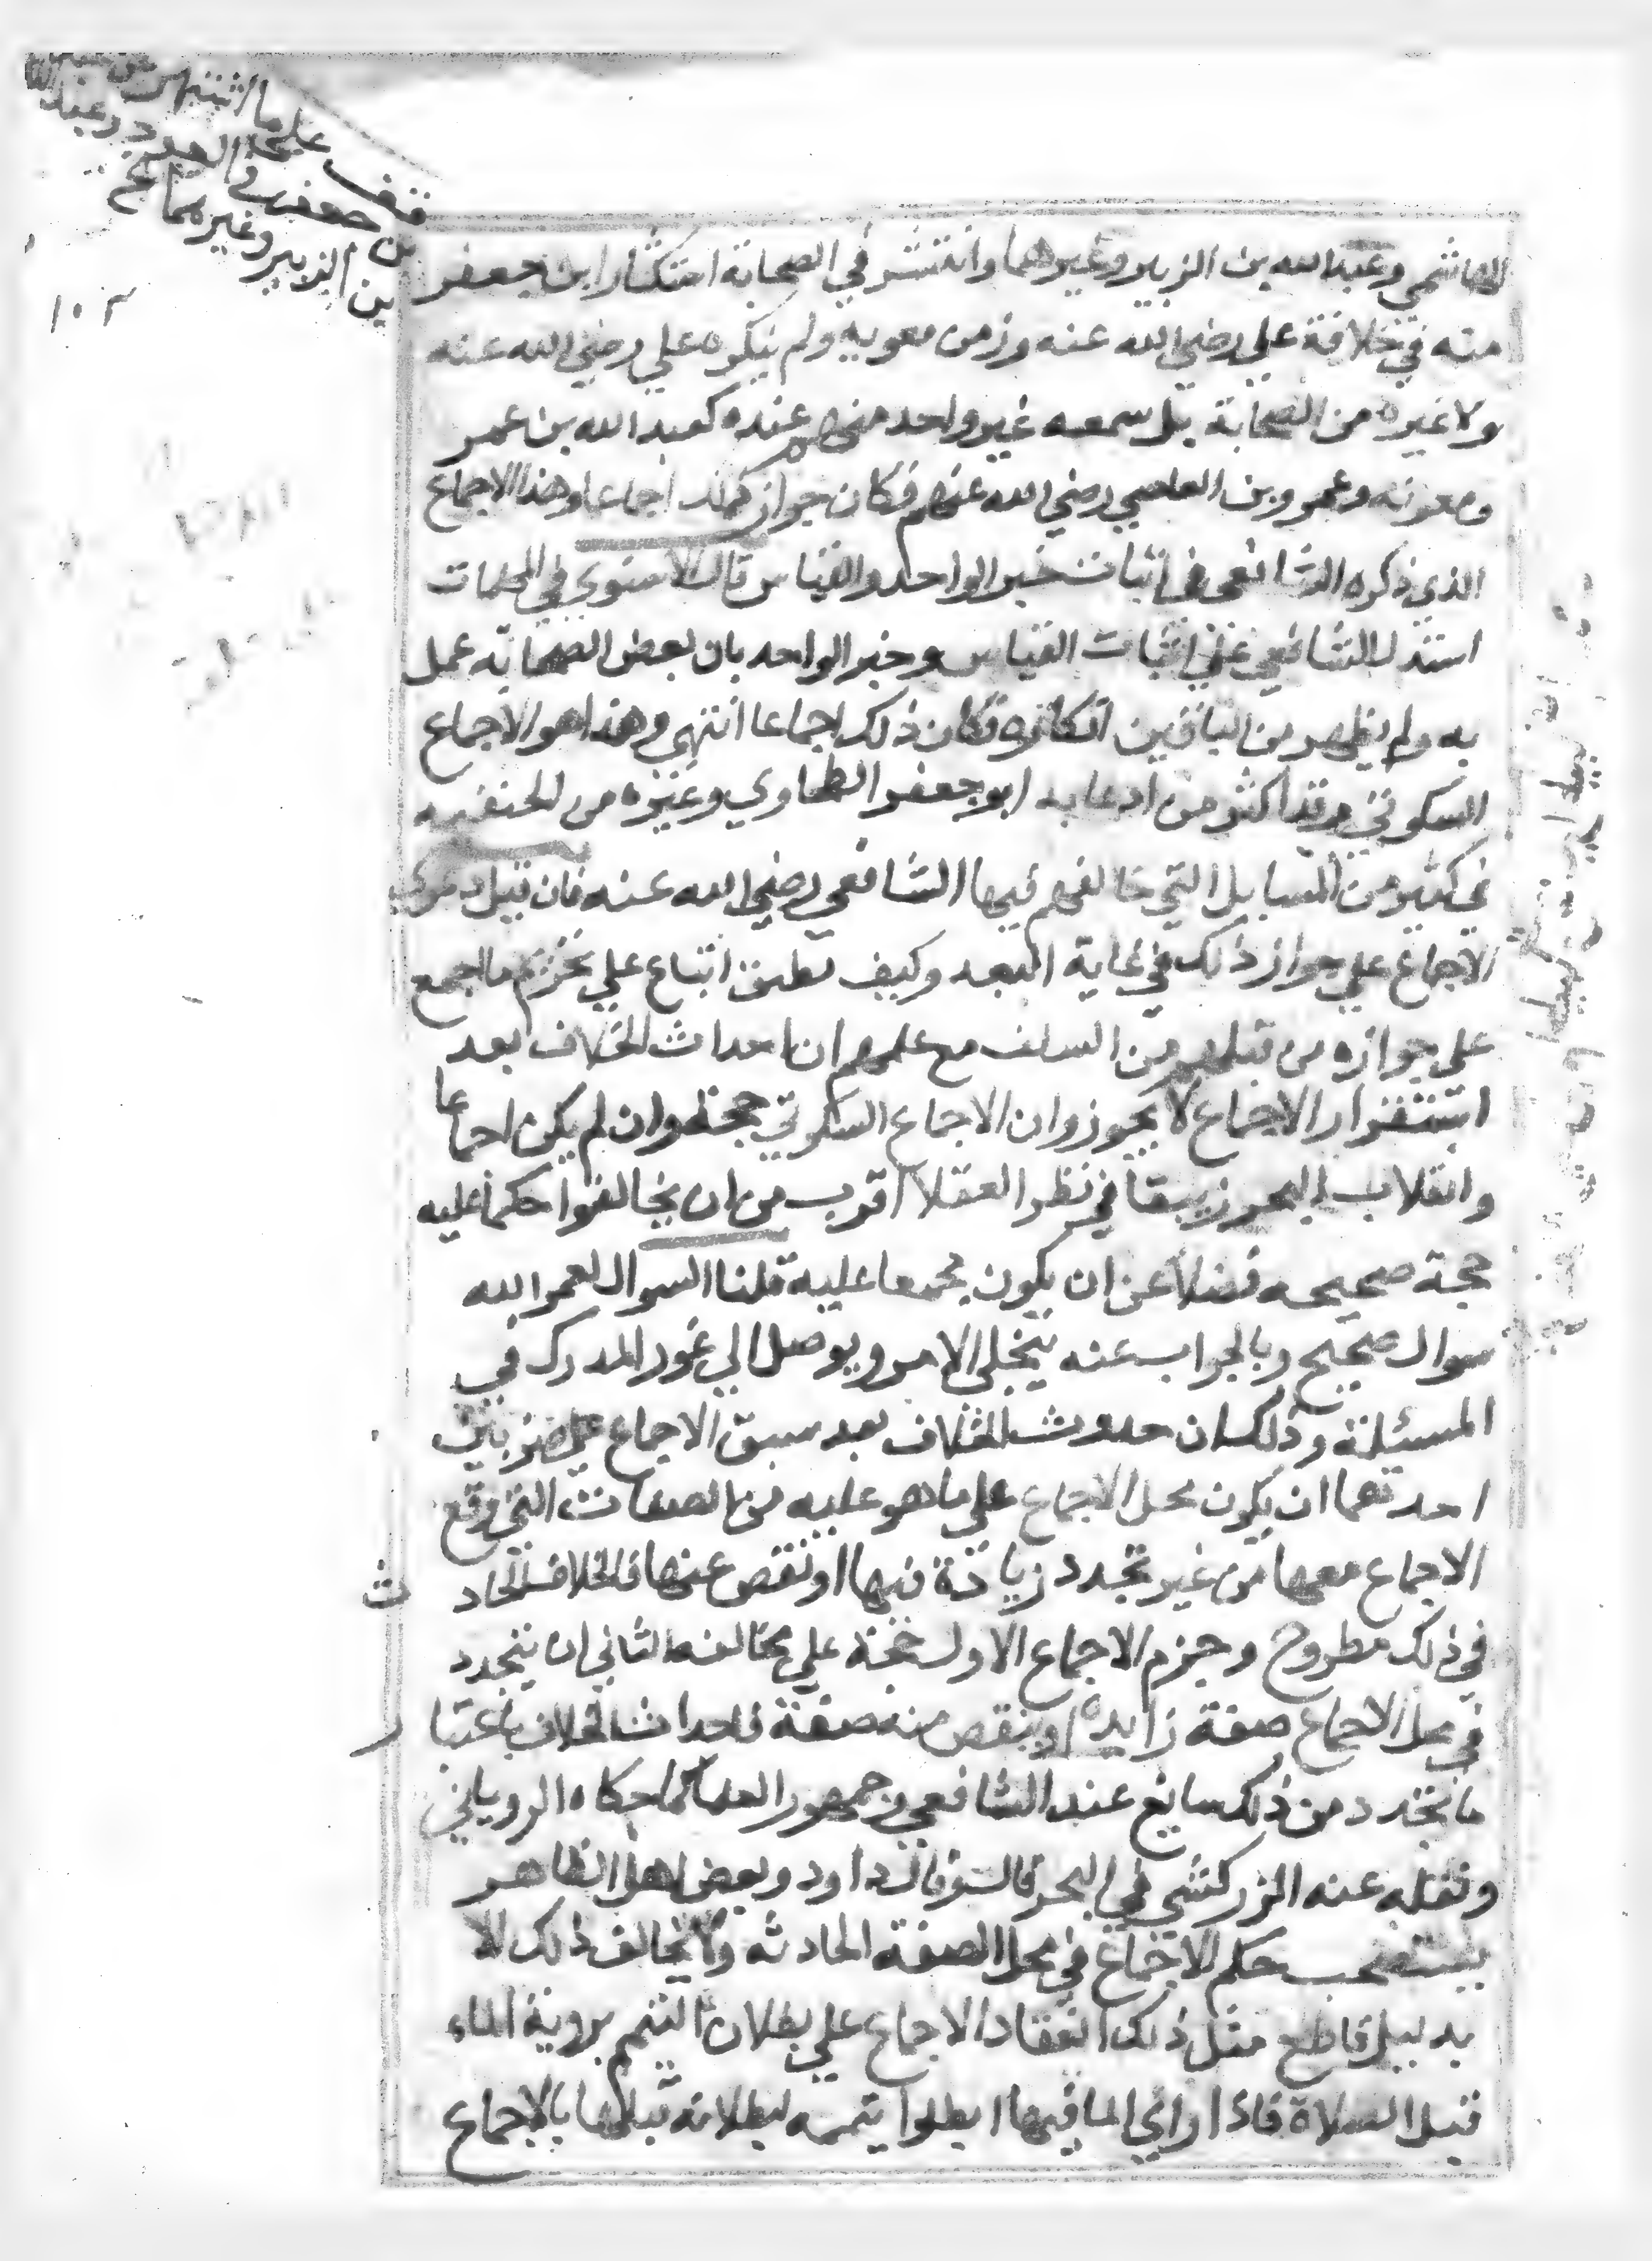 قف على ما اشتهر
بن جعفر في العود وعبد الله
بن الزبير وغيرهما
١٠٣
الهاشمي وعبد الله بن الزبير وغيرهما وانتشر في الصحابة استكثار ابن جعفر
منه في خلافة علي رضي الله عنه وزمن معويه ولم ينكره علي رضي الله عنه
ولا غيره من الصحابة بل سمعه غير واحد منهم عنده كعبد الله بن عمر
ومعويه وعمرو بن العاصي رضي الله عنهم فكان جواز ذلك اجماعا وهذا الاجماع
الذي ذكره الشافعي في اثبات خبر الواحد والقياس قال الاسنوي في المهمات
استدل الشافعي على اثبات القياس وخبر الواحد بان بعض الصحابة عمل
به ولم يظهر من الباقين انكاره فكان ذلك اجماعا انتهى وهذا هو الاجماع
السكوتي وقد اكثر من ادعايه ابو جعفر الطحاوي وغيره من الحنفيه
في كثير من المسايل التي خالفهم فيها الشافعي رضي الله عنه فان قيل دعوى
الاجماع على جواز ذلك في غاية البعد وكيف تطبق اتباع على تحريم ما اجمع
على جوازه من قبلهم من السلف مع علمهم ان احداث الخلاف بعد
استقرار الاجماع لا يجوز وان الاجماع السكوتي حجة وان لم يكن اجماعا
وانقلاب البحر زيبقا في نظر العقلا اقرب من ان يخالفوا حكما عليه
حجة صحيحه فضلا عن ان يكون مجمعا عليه قلنا السوال لعمر الله
سوال صحيح وبالجواب عنه ينجلي الامر ويوصل الي غور المدرك في
المسئلة وذلك ان حدوث الخلاف بعد سبق الاجماع على ضربين
احدهما ان يكون محل الاجماع على ما هو عليه من الصفات التي وقع
الاجماع معها من غير تجدد زيادة فيها او نقص عنها فالخلاف الحادث
في ذلك مطروح وجزم الاجماع الاول حجة على مخالفه الثاني ان يتجدد
في محل الاجماع صفة زايدة او ينقص منه صفة فاحداث الخلاف باعتبار
ما تجدد من ذلك سايغ عند الشافعي وجمهور العلما كما حكاه الروياني
ونقله عنه الزركشي في البحر قالـ وقال داود وبعض اهل الظاهر
يستصحب حكم الاجماع في محل الصفة الحادثه ولا يخالف ذلك الا
بدليل قاطع مثل ذلك انعقاد الاجماع على بطلان التيمم بروية الماء
قبل الصلاة فاذا راي الما فيها ابطلوا تيممه لبطلانه قبلها بالاجماع